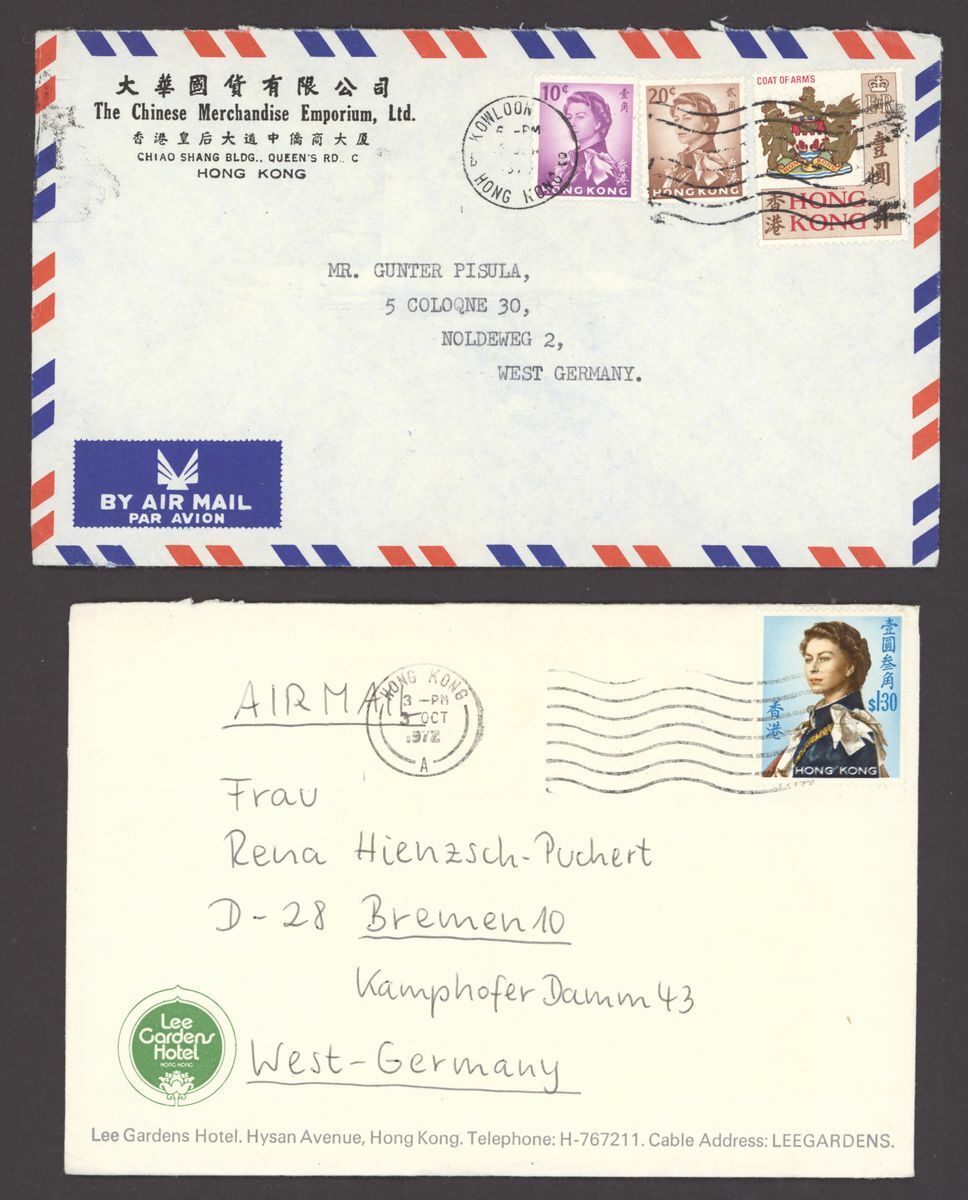 大華國貨有限公司
The Chinese Merchandise Emporium, Ltd.
香港皇后大道中僑商大厦
CHIAO SHANG BLDG., QUEEN'S RD., C
HONG KONG
KOWLOON
6 -PM
HONG KONG
10¢
壹角
香港
HONG KONG
20¢
貳角
香港
HONG KONG
COAT OF ARMS
壹圓
香港
HONG
KONG
MR. GUNTER PISULA,
5 COLOQNE 30,
NOLDEWEG 2,
WEST GERMANY.
BY AIR MAIL
PAR AVION
AIRMAIL
HONG KONG
3 -PM
3 OCT
1972
A
壹圓叁角
$1.30
香港
HONG KONG
Frau
Rena Hienzsch-Puchert
D-28 Bremen 10
Kamphofer Damm 43
West-Germany
Lee
Gardens
Hotel
HONG KONG
Lee Gardens Hotel. Hysan Avenue, Hong Kong. Telephone: H-767211. Cable Address: LEEGARDENS.